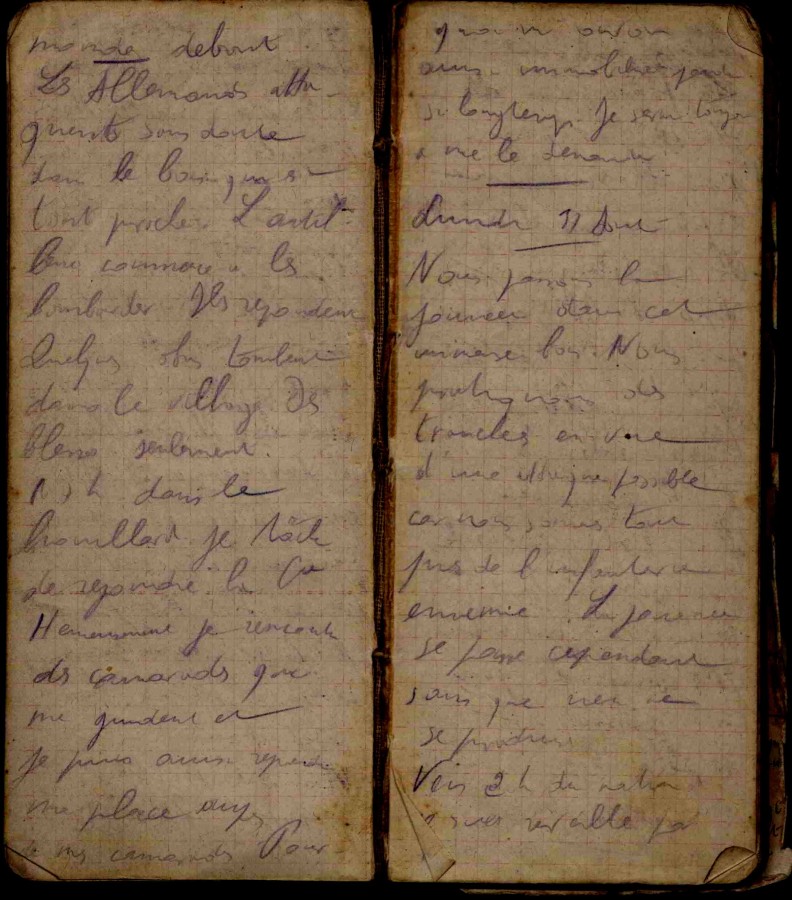 monde debout
Les Allemands atta-
quent sans doute
dans le bois qui est
tout proche. L'artil-
lerie commence à les
bombarder. Ils repondent
Quelques obus tombent
dans le village Des
blessés seulement.
h dans le
brouillard je tâche
de rejoindre la Cie
Heureusement je rencontre
des camarades qui
me guident et
je puis ainsi reprendre
ma place auprès
de mes camarades Pour-
quoi
ainsi immobilisé pendant
si longtemps. Je serai toujours
à me le demander
Lundi 31 Aout
Nous passons la
journée dans cet
immense bois. Nous
pratiquons des
tranchées en vue
d'une attaque possible
car nous sommes tout
près de l'infanterie
ennemie. La journée
se passe cependant
sans que rien ne
se produise
Vers 2 h du matin
je suis réveillé par